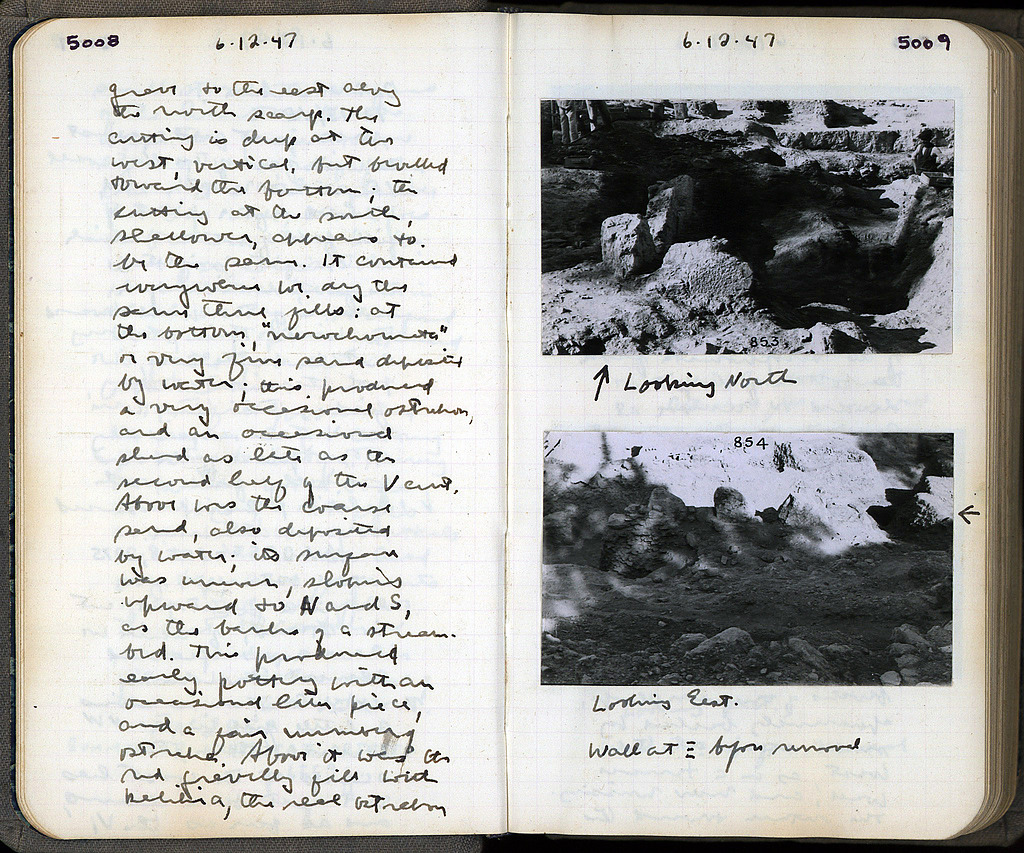 5008
6·12·47
grave to the east along
the north scarp. The
cutting is deep at the
west, vertical, but bevelled
toward the bottom; the
cutting at the south,
shallower, appears to
be the same. It contained
everywhere we dug the
same three fills: at
the bottom, "nerochomata"
or very fine sand deposited
by water; this produced
a very occasional ostrakon,
and an occasional
sherd as late as the
second half of the V cent.
Above was the coarse
sand, also deposited
by water; its surface
was uneven, sloping
upward to N and S,
as the banks of a stream-
bed. This produced
early pottery with an
occasional late piece,
and a fair number of
ostraka. Above it was the
red gravelly fill with
kalibia, the real ostrakon
6·12·47
5009
853
↑ Looking North
854
←
Looking East.
Wall at Ξ before removal